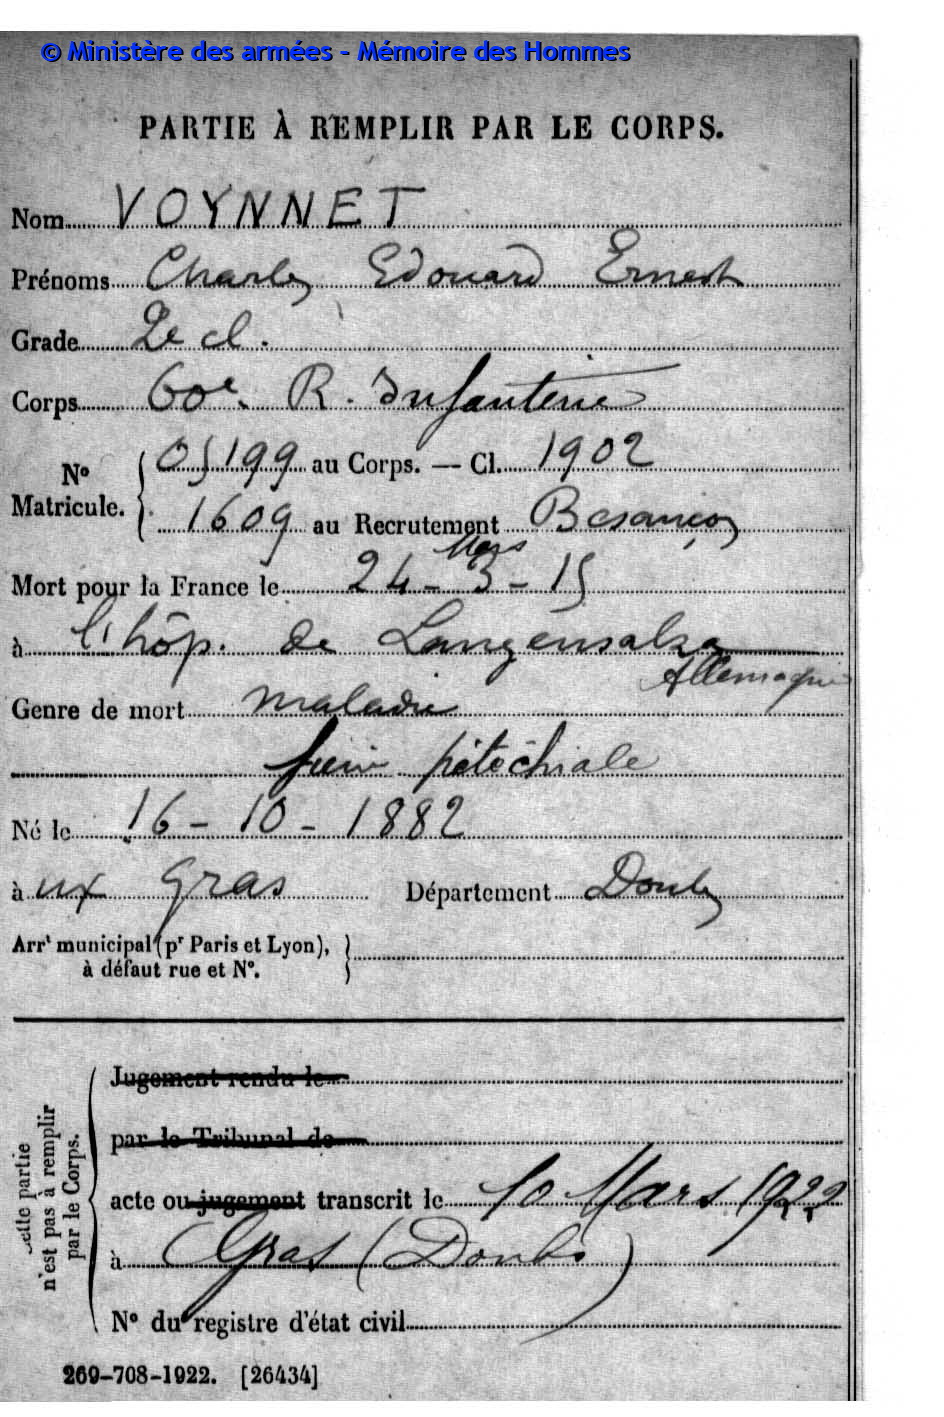 © Ministère des armées - Mémoire des Hommes
PARTIE À REMPLIR PAR LE CORPS.
Nom VOYNNET
Prénoms Charles Edouard Ernest
Grade 2e cl.
Corps 60e R. Infanterie
No Matricule. { 05199 au Corps. — Cl. 1902
1609 au Recrutement Besançon
Mars
Mort pour la France le 24 - 3 - 15
à l'hôp. de Langensalza
Allemagne
Genre de mort maladie
fièvre pétéchiale
Né le 16 - 10 - 1882
à ux Gras Département Doubs
Arrt municipal (pr Paris et Lyon),
à défaut rue et No.
Cette partie
n'est pas à remplir
par le Corps.
Jugement rendu le
par le Tribunal de
acte ou jugement transcrit le 10 Mars 1922
à Gras (Doubs)
No du registre d'état civil
269-708-1922. [26434]